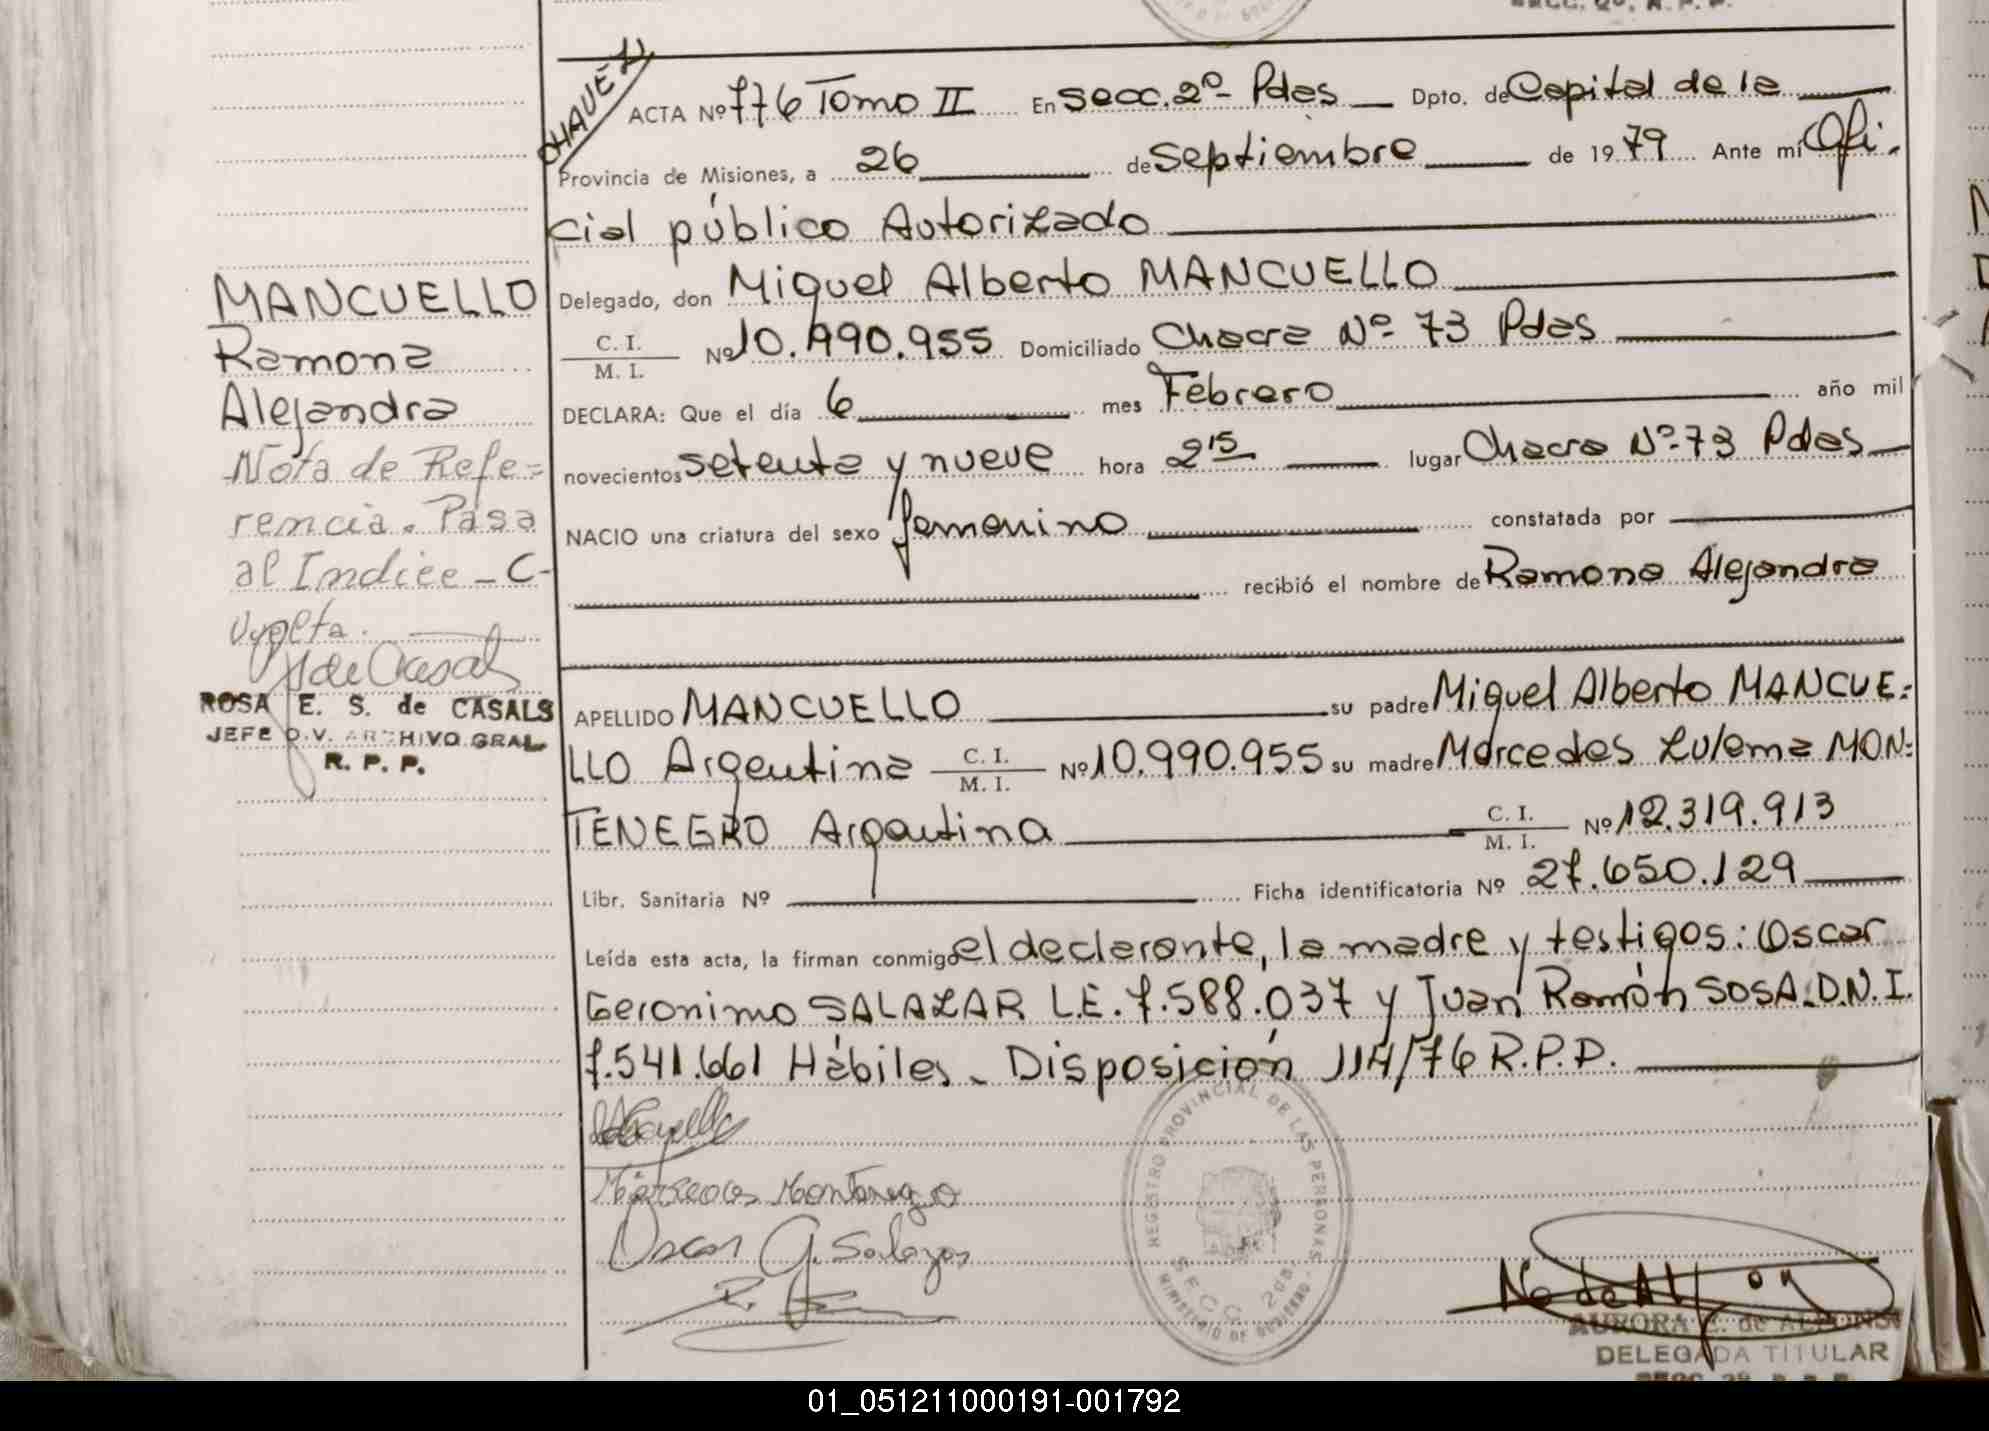 CHAVEZ
ACTA Nº 776 Tomo II En Secc. 2º- Pdas Dpto. de Capital de la
Provincia de Misiones, a 26 de Septiembre de 1979 Ante mí Ofi-
cial público Autorizado
Delegado, don Miguel Alberto MANCUELLO
C. I.
M. I. Nº 10.990.955 Domiciliado Chacra Nº- 73 Pdas
DECLARA: Que el día 6 mes Febrero año mil
novecientos setenta y nueve hora 2 15 lugar Chacra Nº-73 Pdas
NACIO una criatura del sexo femenino constatada por
recibió el nombre de Ramona Alejandra
APELLIDO MANCUELLO su padre Miguel Alberto MANCUE=
LLO Argentina C. I. M. I. Nº 10.990.955 su madre Mercedes Zulema MON=
TENEGRO Argentina C. I. M. I. Nº 12.319.913
Libr. Sanitaria Nº Ficha identificatoria Nº 27.650.129
Leída esta acta, la firman conmigo el declarante, la madre y testigos: Oscar
Geronimo SALAZAR L.E. 7.588.037 y Juan Ramón SOSA. D.N.I.
7.541.661 Hábiles. Disposición 114/76 R.P.P.
Mercedes Montenegro
Oscar G. Salazar
MANCUELLO
Ramona
Alejandra
Nota de Refe=
rencia. Pasa
al Indice - C-
vuelta.
ROSA E. S. de CASALS
JEFE DIV. ARCHIVO GRAL.
R. P. P.
REGISTRO PROVINCIAL DE LAS PERSONAS
SECC. 2da.
MINISTERIO DE GOBIERNO
AURORA E. de ALFONSO
DELEGADA TITULAR
01_051211000191-001792